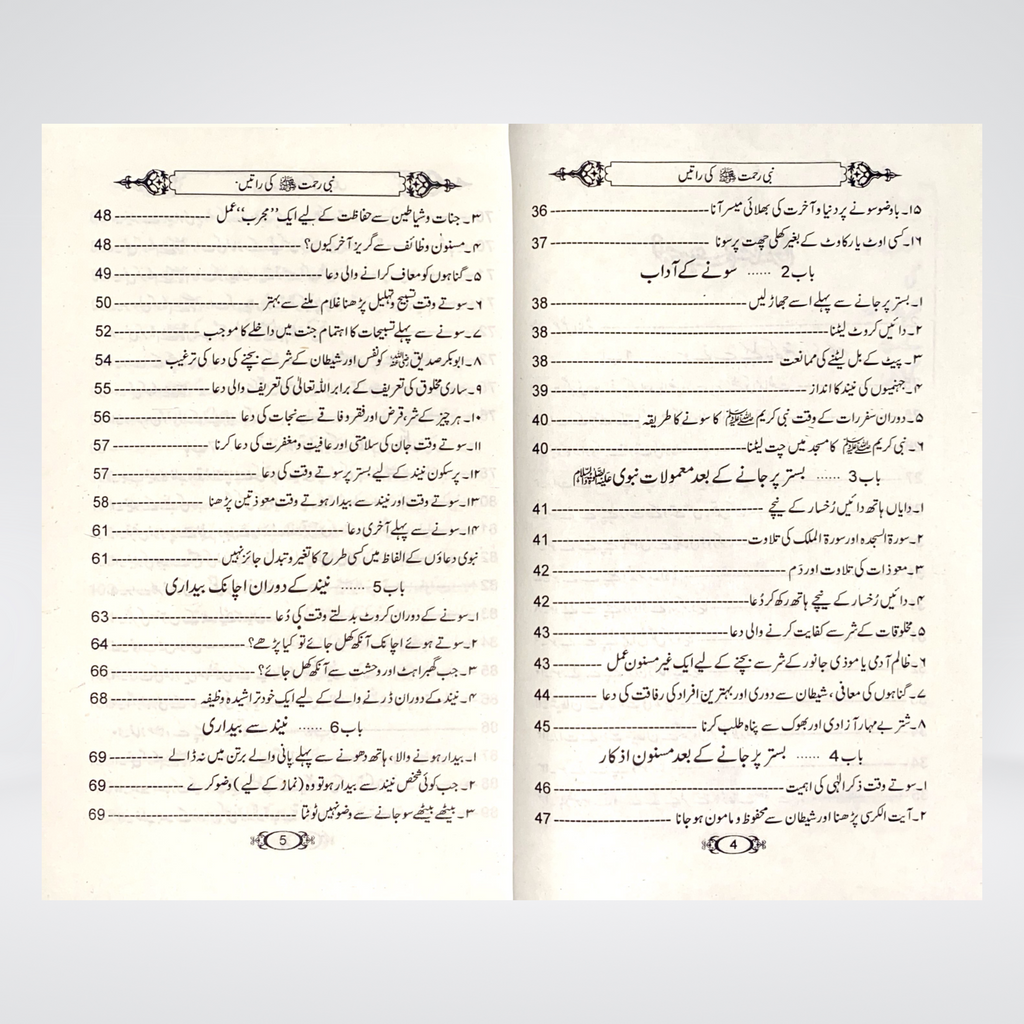 نبی رحمت ﷺ کی راتیں
۱۵۔ باوضو سونے پر دنیا و آخرت کی بھلائی میسر آنا 36
۱۶۔ کسی اوٹ یا رکاوٹ کے بغیر کھلی چھت پر سونا 37
باب 2 ...... سونے کے آداب
۱۔ بستر پر جانے سے پہلے اسے جھاڑ لیں 38
۲۔ دائیں کروٹ لیٹنا 38
۳۔ پیٹ کے بل لیٹنے کی ممانعت 38
۴۔ جہنمیوں کی نیند کا انداز 39
۵۔ دوران سفر رات کے وقت نبی کریم ﷺ کا سونے کا طریقہ 40
۶۔ نبی کریم ﷺ کا مسجد میں چت لیٹنا 40
باب 3 ...... بستر پر جانے کے بعد معمولات نبوی علیہ الصلوٰۃ والسلام
۱۔ دایاں ہاتھ دائیں رُخسار کے نیچے 41
۲۔ سورۃ السجدہ اور سورۃ الملک کی تلاوت 41
۳۔ معوذات کی تلاوت اور دَم 42
۴۔ دائیں رُخسار کے نیچے ہاتھ رکھ کر دُعا 42
۵۔ مخلوقات کے شر سے کفایت کرنے والی دعا 43
۶۔ ظالم آدمی یا موذی جانور کے شر سے بچنے کے لیے ایک غیر مسنون عمل 43
۷۔ گناہوں کی معافی، شیطان سے دوری اور بہترین افراد کی رفاقت کی دعا 44
۸۔ شتر بے مہار آزادی اور بھوک سے پناہ طلب کرنا 45
باب 4 ...... بستر پر جانے کے بعد مسنون اذکار
۱۔ سوتے وقت ذکر الٰہی کی اہمیت 46
۲۔ آیت الکرسی پڑھنا اور شیطان سے محفوظ و مامون ہو جانا 47
4
نبی رحمت ﷺ کی راتیں
۳۔ جنات و شیاطین سے حفاظت کے لیے ایک ”مجرب“ عمل 48
۴۔ مسنون وظائف سے گریز آخر کیوں؟ 48
۵۔ گناہوں کو معاف کرانے والی دعا 49
۶۔ سوتے وقت تسبیح و تہلیل پڑھنا غلام ملنے سے بہتر 50
۷۔ سونے سے پہلے تسبیحات کا اہتمام جنت میں داخلے کا موجب 52
۸۔ ابوبکر صدیق رضی اللہ عنہ کو نفس اور شیطان کے شر سے بچنے کی دعا کی ترغیب 54
۹۔ ساری مخلوق کی تعریف کے برابر اللہ تعالیٰ کی تعریف والی دعا 55
۱۰۔ ہر چیز کے شر، قرض اور فقر و فاقے سے نجات کی دعا 56
۱۱۔ سوتے وقت جان کی سلامتی اور عافیت و مغفرت کی دعا کرنا 57
۱۲۔ پرسکون نیند کے لیے بستر پر سوتے وقت کی دعا 57
۱۳۔ سوتے وقت اور نیند سے بیدار ہوتے وقت معوذتین پڑھنا 58
۱۴۔ سونے سے پہلے آخری دعا 61
نبوی دعاؤں کے الفاظ میں کسی طرح کا تغیر و تبدل جائز نہیں 61
باب 5 ...... نیند کے دوران اچانک بیداری
۱۔ سونے کے دوران کروٹ بدلتے وقت کی دُعا 63
۲۔ سوتے ہوئے اچانک آنکھ کھل جائے تو کیا پڑھے؟ 64
۳۔ جب گھبراہٹ اور وحشت سے آنکھ کھل جائے؟ 66
۴۔ نیند کے دوران ڈرنے والے کے لیے ایک خود تراشیدہ وظیفہ 68
باب 6 ...... نیند سے بیداری
۱۔ بیدار ہونے والا، ہاتھ دھونے سے پہلے پانی والے برتن میں نہ ڈالے 69
۲۔ جب کوئی شخص نیند سے بیدار ہو تو وہ (نماز کے لیے) وضو کرے 69
۳۔ بیٹھے بیٹھے سو جانے سے وضو نہیں ٹوٹتا 69
5